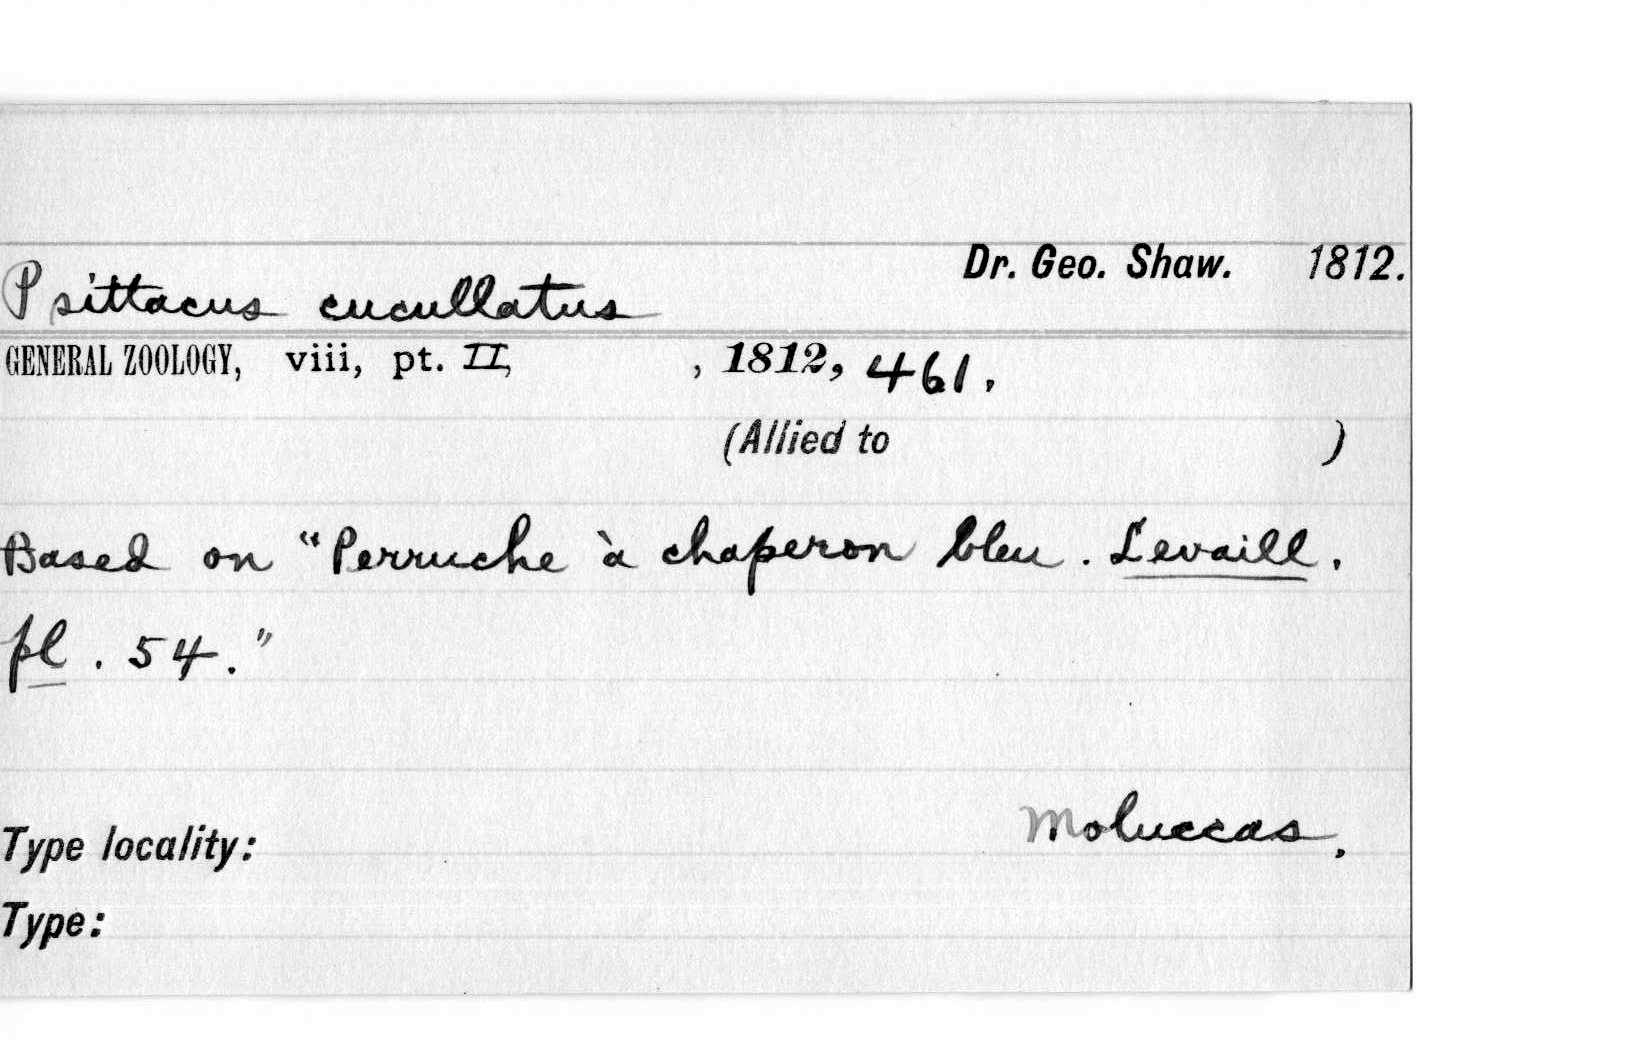 Dr. Geo. Shaw. 1812.
Psittacus cucullatus
GENERAL ZOOLOGY, viii, pt. II, , 1812, 461.
(Allied to )
Based on "Perruche à chaperon bleu. Levaill.
pl. 54."
Moluccas.
Type locality:
Type: